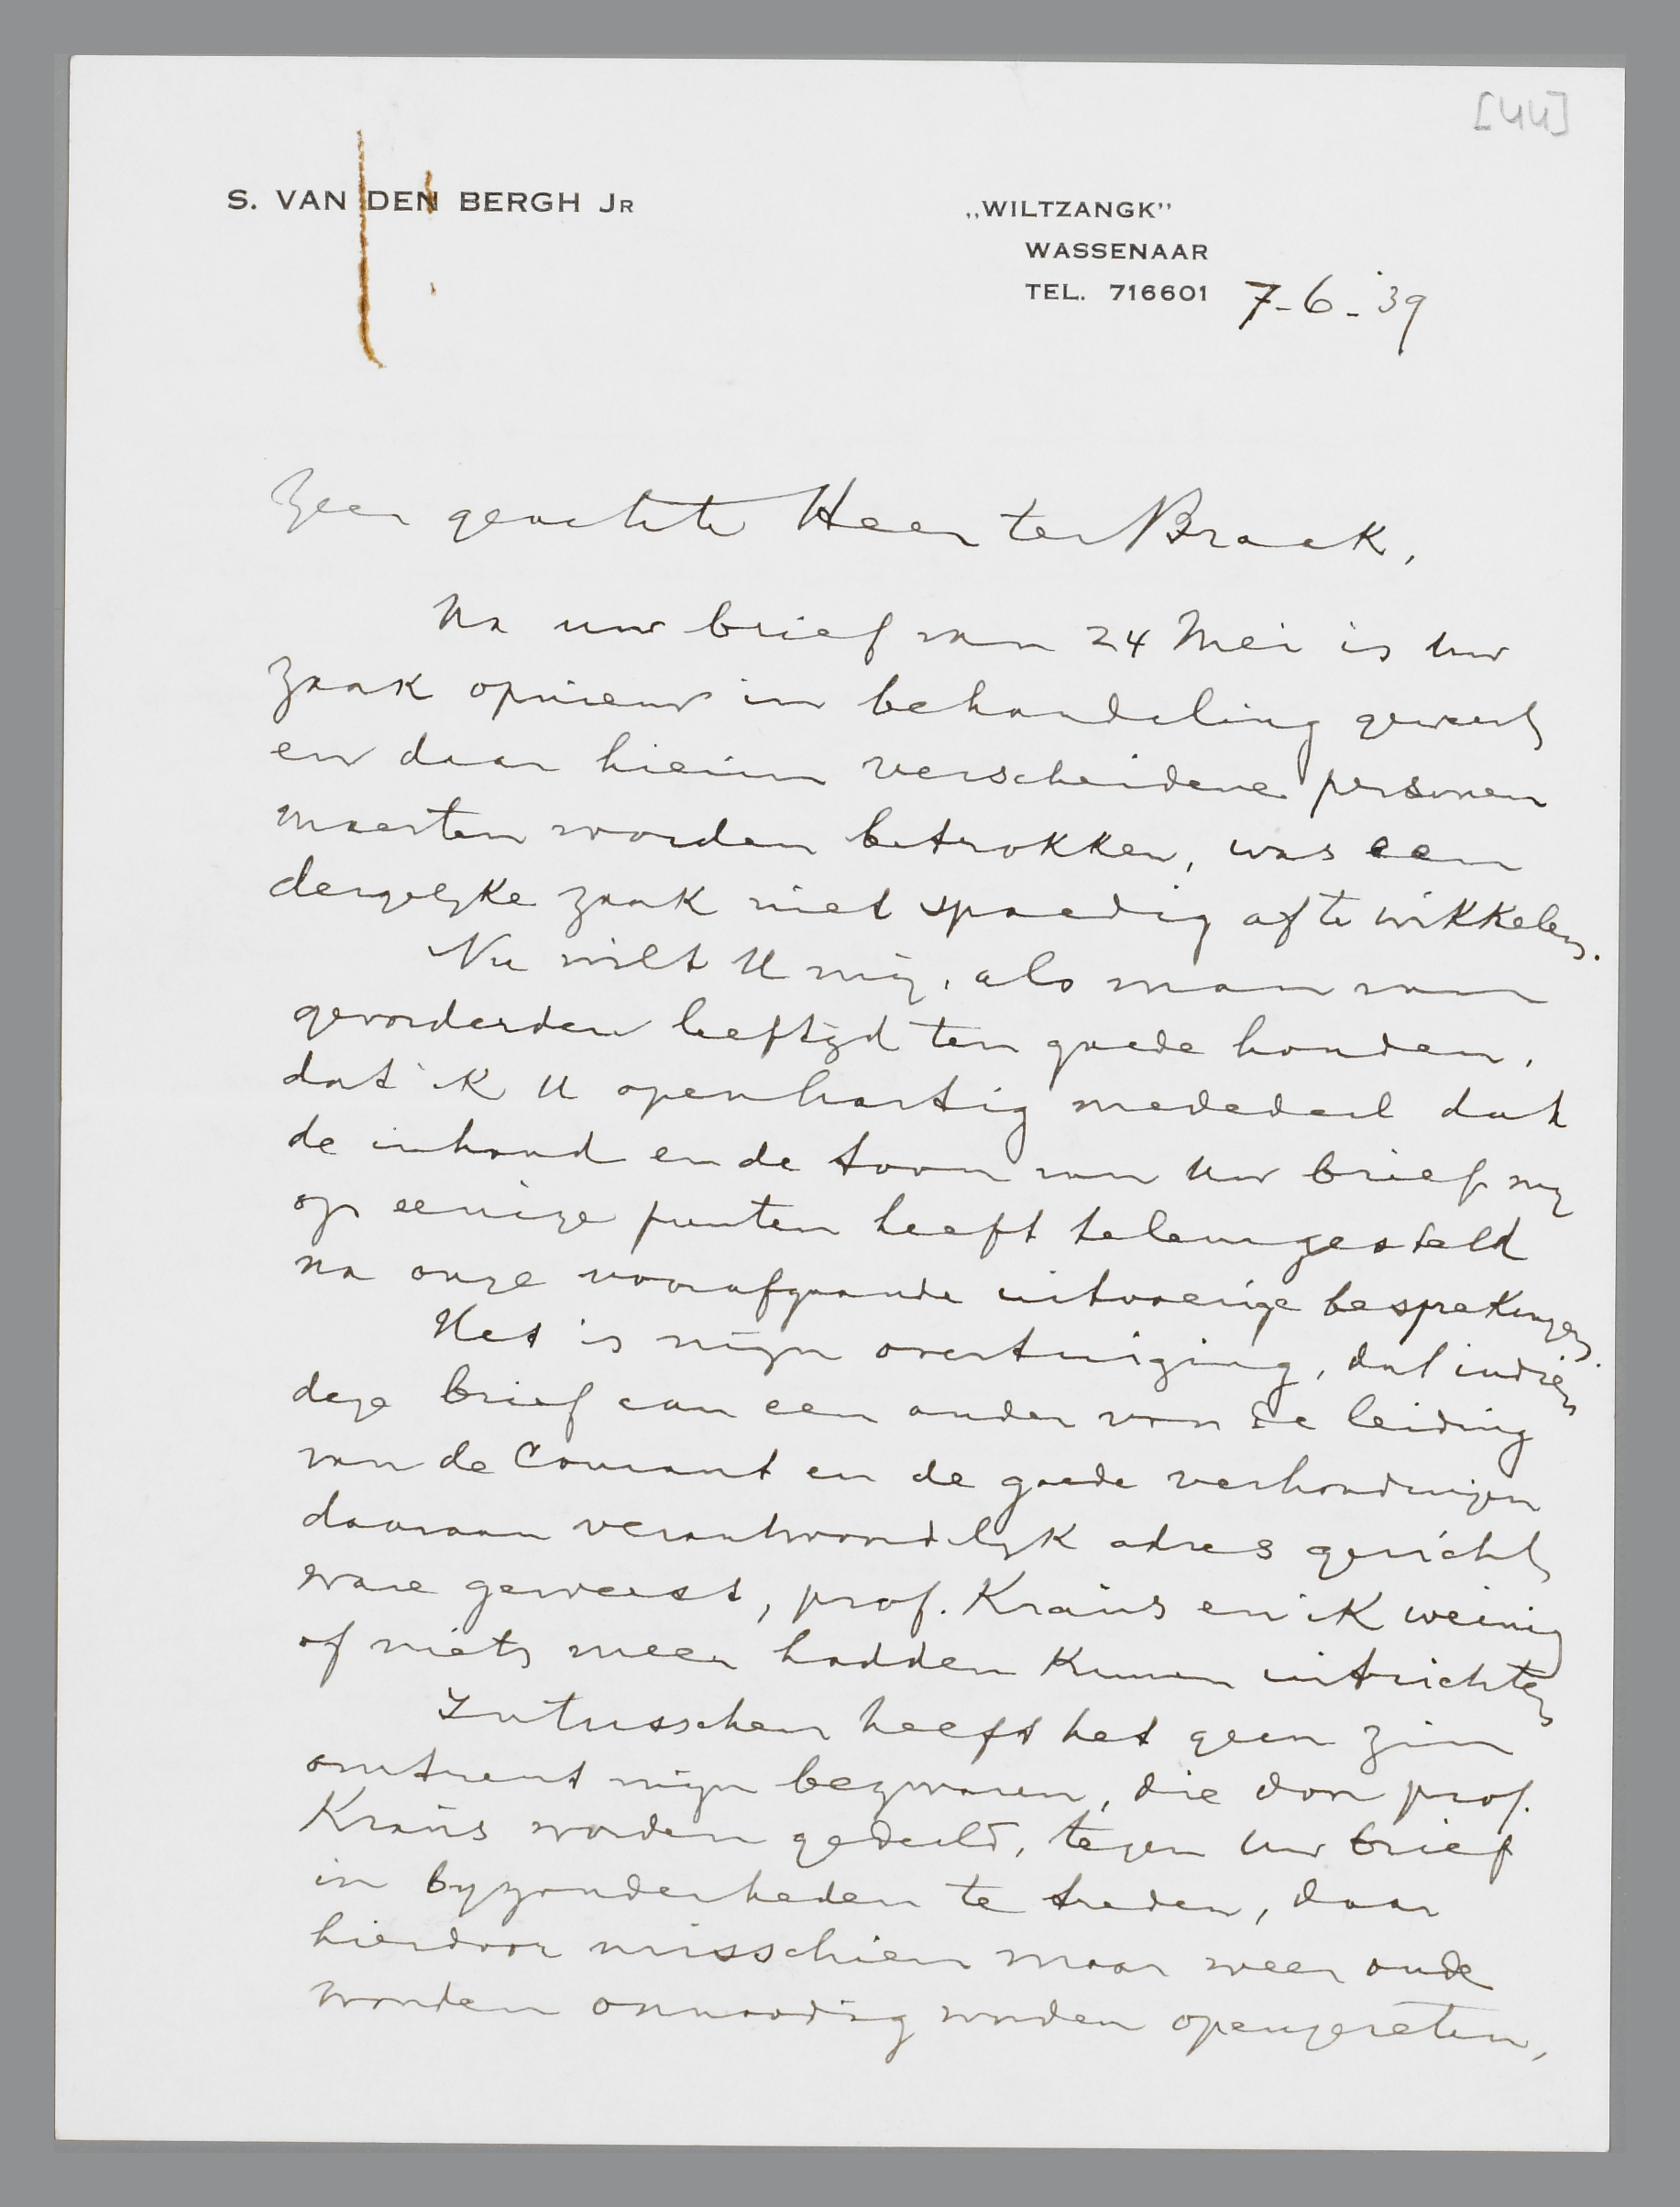 [44]
S. VAN DEN BERGH JR
„WILTZANGK”
WASSENAAR
TEL. 716601 7-6-'39
Zeer geachte Heer ter Braak,
Na uw brief van 24 Mei is Uw
zaak opnieuw in behandeling geweest
en daar hierin verscheidene personen
moesten worden betrokken, was een
dergelijke zaak niet spoedig af te wikkelen.
Nu wilt U mij, als man van
gevorderden leeftijd ten goede houden,
dat ik U openhartig mededeel dat
de inhoud en de toon van Uw brief mij
op eenige punten heeft teleurgesteld
na onze voorafgaande uitvoerige besprekingen.
Het is mijn overtuiging, dat indien
deze brief aan een ander voor de leiding
van de Courant en de goede verhoudingen
daaraan verantwoordelijk adres gericht
ware geweest, prof. Kraus en ik weinig
of niets meer hadden kunnen uitrichten
Intusschen heeft het geen zin
omtrent mijn bezwaren, die door prof.
Kraus worden gedeeld, tegen Uw brief
in byzonderheden te treden, daar
hierdoor misschien maar weer oude
wonden onnoodig worden opengereten,